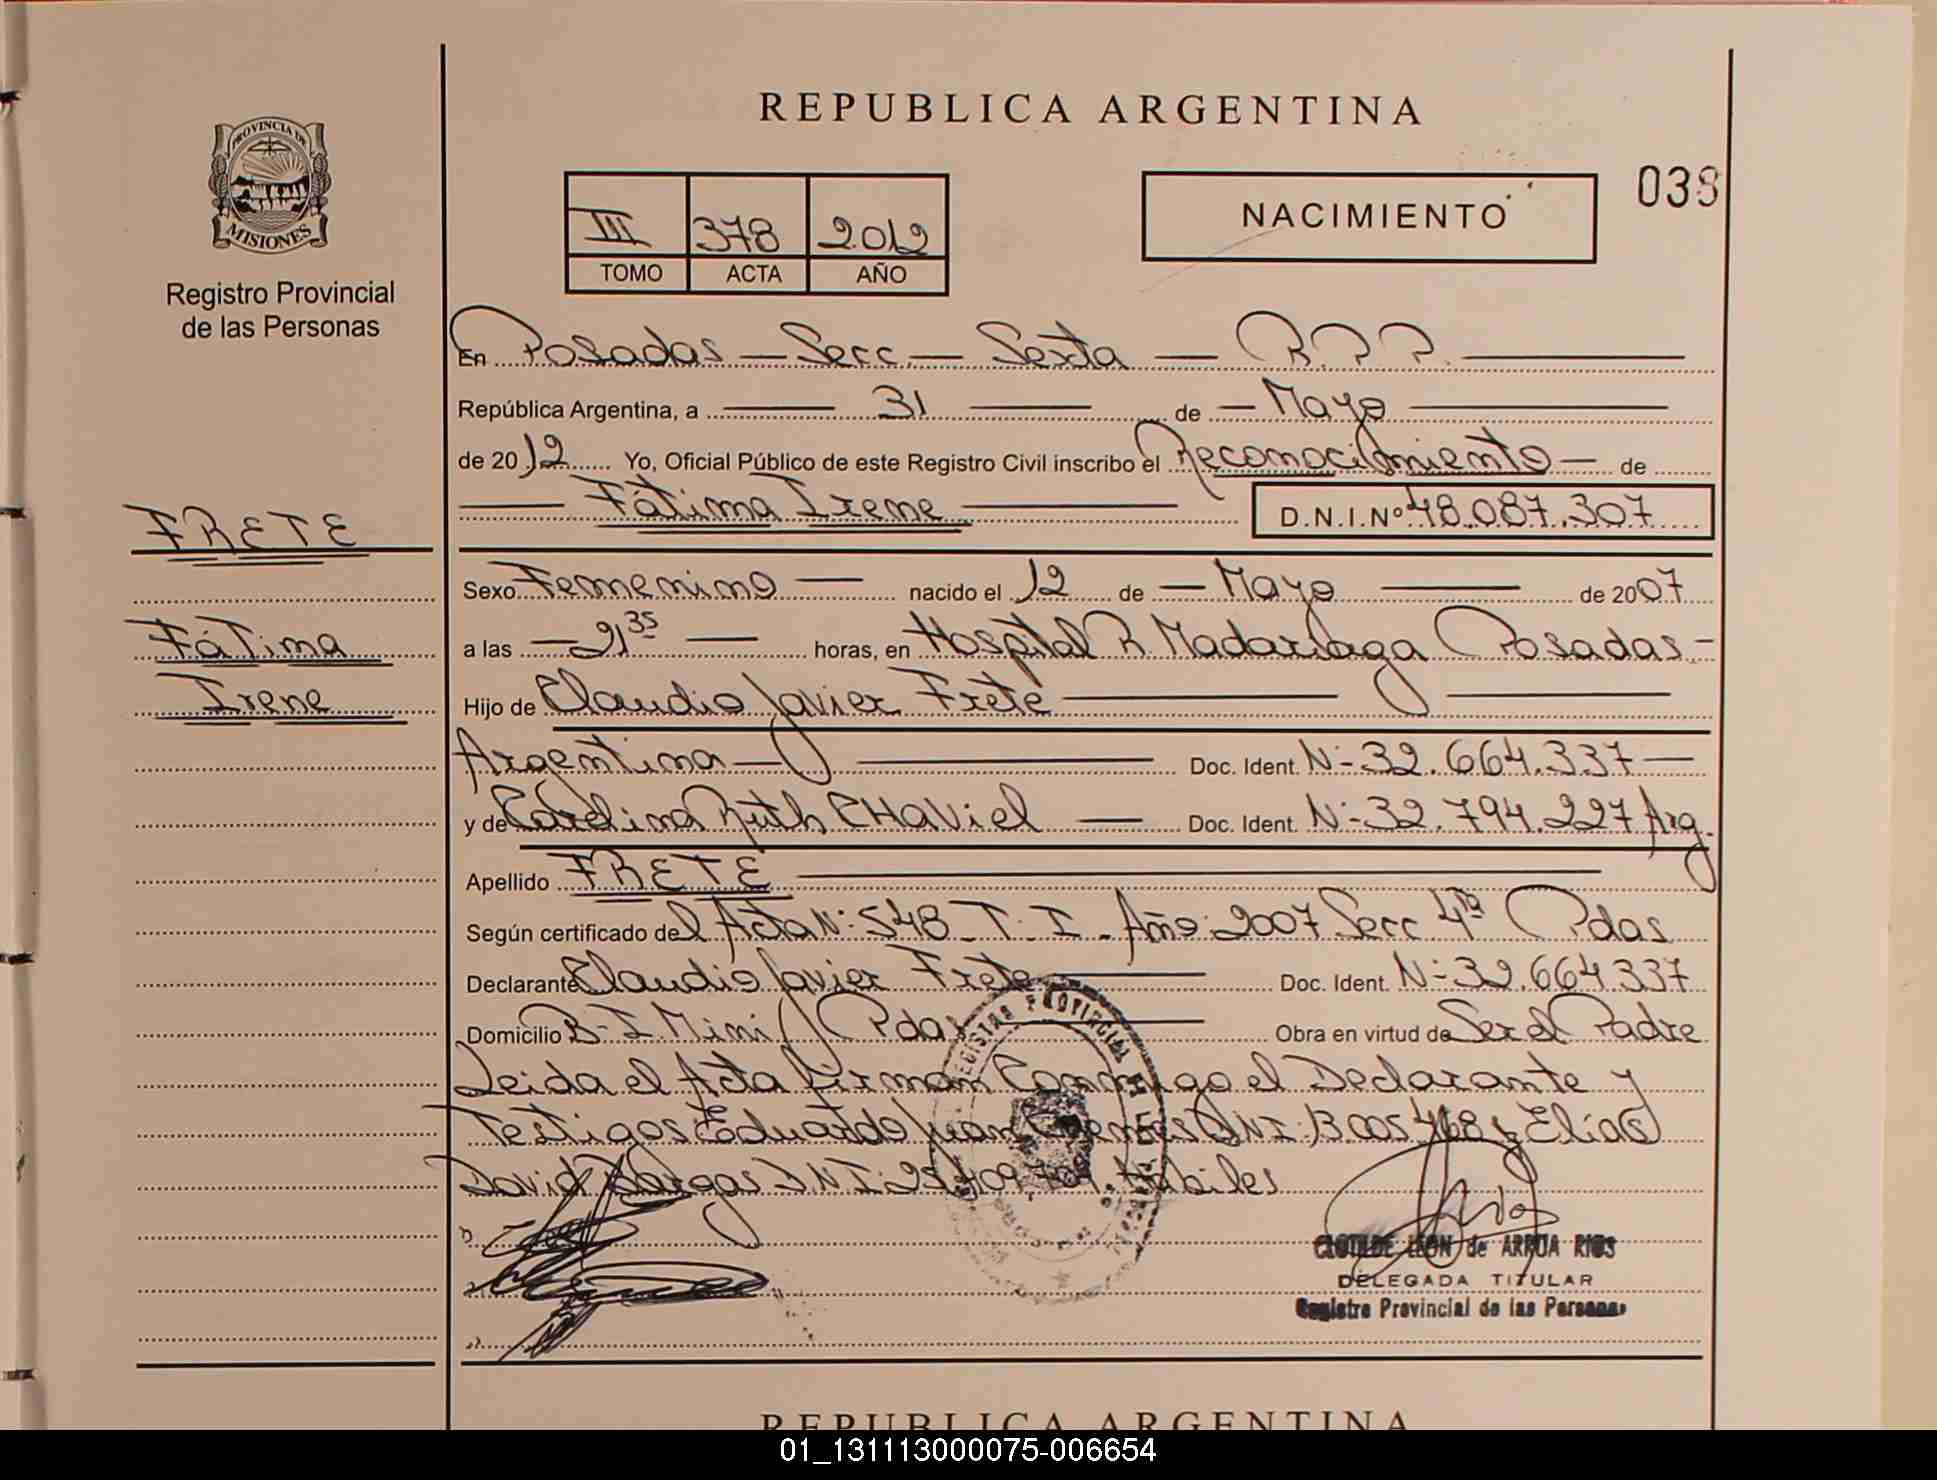 REPUBLICA ARGENTINA
PROVINCIA DE
MISIONES
Registro Provincial
de las Personas
III 378 2012
TOMO ACTA AÑO
NACIMIENTO
038
En Posadas — Secc. — Sexta — R.P.P. —
República Argentina, a — 31 — de — Mayo —
de 2012 Yo, Oficial Público de este Registro Civil inscribo el Reconocimiento — de
— Fátima Irene — D.N.I.Nº 48.087.307
FRETE
Fátima
Irene
Sexo Femenino — nacido el 12 de — Mayo — de 2007
a las — 21 35 — horas, en Hospital R. Madariaga Posadas -
Hijo de Claudio Javier Frete —
Argentina — Doc. Ident. N:- 32.664.337 —
y de Carolina Ruth CHaViel — Doc. Ident. N:- 32.794.227 Arg.
Apellido FRETE —
Según certificado del Acta N: 548 - T: I - Año: 2007 Secc 4ta Pdas
Declarante Claudio Javier Frete — Doc. Ident. N:- 32.664337
Domicilio B- I. Mini / Pdas — Obra en virtud de Ser el Padre
Leida el Acta firman Conmigo el Declarante y
Testigos Eduardo Juan DNI: 13.005.468 y Elías
David Vargas DNI: Habiles
REGISTRO PROVINCIAL DE LAS
CLOTILDE LEON de ARRUA RIOS
DELEGADA TITULAR
Registro Provincial de las Personas
REPUBLICA ARGENTINA
01_131113000075-006654